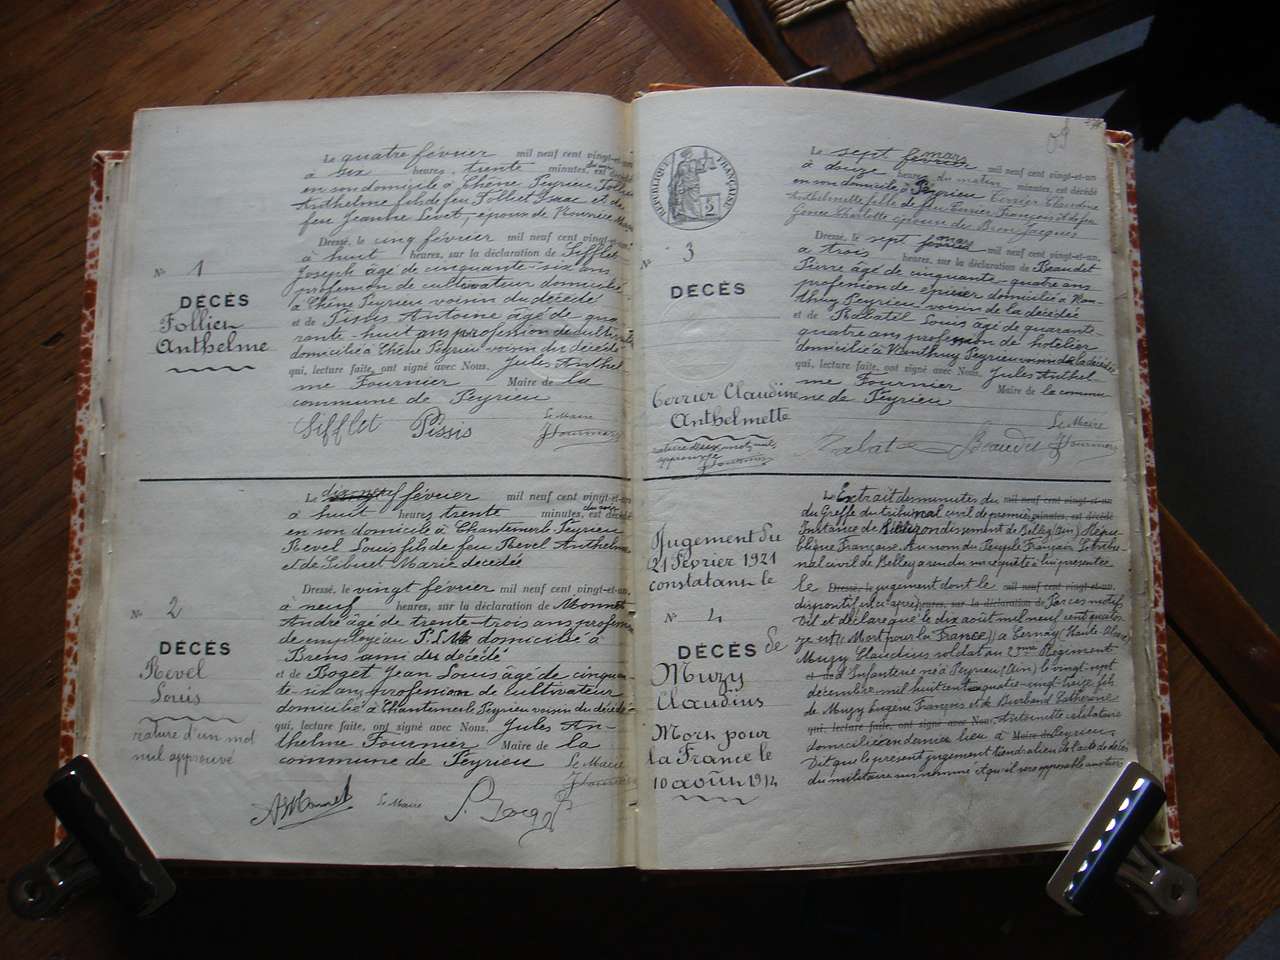 Le quatre février mil neuf cent vingt-et-un
à six heures, trente minutes, du soir est décédé
en son domicile à Chêne Peyrieu Follien
Anthelme fils de feu Folliet Isaac et de
feu Jeanne Livet, époux de
Dressé, le cinq février mil neuf cent vingt-et-un,
à huit heures, sur la déclaration de Sifflet
Joseph âgé de cinquante-six ans
profession de cultivateur domicilié
à Chêne Peyrieu voisin du décédé
et de Pissis Antoine âgé de qua
rante-huit ans profession de cultivate
domicilié à Chêne Peyrieu voisin du décédé
qui, lecture faite, ont signé avec Nous, Jules Anthel
me Fournier Maire de la
commune de Peyrieu
Sifflet Pissis Le Maire
JFournier
N° 1
DÉCÈS
Follien
Anthelme
Le dix neuf février mil neuf cent vingt-et-un
à huit heures trente minutes, du soir est décédé
en son domicile à Chantemerle Peyrieu
Revel Louis fils de feu Revel Anthelme
et de Sibuet Marie décédée
Dressé, le vingt février mil neuf cent vingt-et-un,
à neuf heures, sur la déclaration de Monnet
André âgé de trente-trois ans profession
de employé au P.L.M. domicilié à
Brens ami du décédé
et de Boget Jean Louis âgé de cinquan
te-six ans profession de cultivateur
domicilié à Chantemerle Peyrieu voisin du décédé
qui, lecture faite, ont signé avec Nous, Jules An-
thelme Fournier Maire de la
commune de Peyrieu Le Maire
JFournier
AMonnet Le Maire
N° 2
DÉCÈS
Revel
Louis
rature d'un mot
nul approuvé
RÉPUBLIQUE FRANÇAISE
Le sept février mars mil neuf cent vingt-et-un
à douze heures du matin minutes, est décédé
en son domicile à Peyrieu Terrier Claudine
Anthelmette fille de feu Terrier François et de feu
Gonce Charlotte épouse de Brou Jacques
Dressé, le sept février mars mil neuf cent vingt-et-un,
à trois heures, sur la déclaration de Beaudet
Pierre âgé de cinquante-quatre ans
profession de épicier domicilié à Nan-
thuy Peyrieu voisin de la décédée
et de Rabatel Louis âgé de quarante
quatre ans profession de hotelier
domicilié à Nanthuy Peyrieu voisin de la décédée
qui, lecture faite, ont signé avec Nous, Jules Anthel-
me Fournier Maire de la commu
ne de Peyrieu
Le Maire
Beaudet JFournier
N° 3
DÉCÈS
Terrier Claudine
Anthelmette
rature deux mots nuls
approuvée
JFournier
Le Extrait des minutes du mil neuf cent vingt-et-un
du Greffe du tribunal civil de première minutes, est décédé
Instance de l'arrondissement de Belley (Ain) Répu-
blique Française. Au nom du Peuple Français Le tribu-
nal civil de Belley a rendu sur requête à lui présentée
le Dressé, le jugement dont le mil neuf cent vingt-et-un,
dispositif est ci après: heures, sur la déclaration de Par ces motifs
Dit et déclare que le dix août mil neuf cent quator
ze est (( Mort pour la France )) à Cernay (Haute Alsace)
Muzy Claudius soldat au 2me Régiment
et de d'Infanterie né à Peyrieu (Ain) le vingt sept
décembre mil huit cent quatre-vingt-treize fils
de Muzy Eugène François et de Burbaud Catherine
qui, lecture faite, ont signé avec Nous, célibataire
domicilié en dernier lieu à Maire de Peyrieu
Dit que le présent jugement tiendra lieu de l'acte de décès
du militaire sus nommé et qu'il sera opposable aux tiers
Jugement du
21 Février 1921
constatant le
N° 4
DÉCÈS de
Muzy
Claudius
Mort pour
la France le
10 août 1914